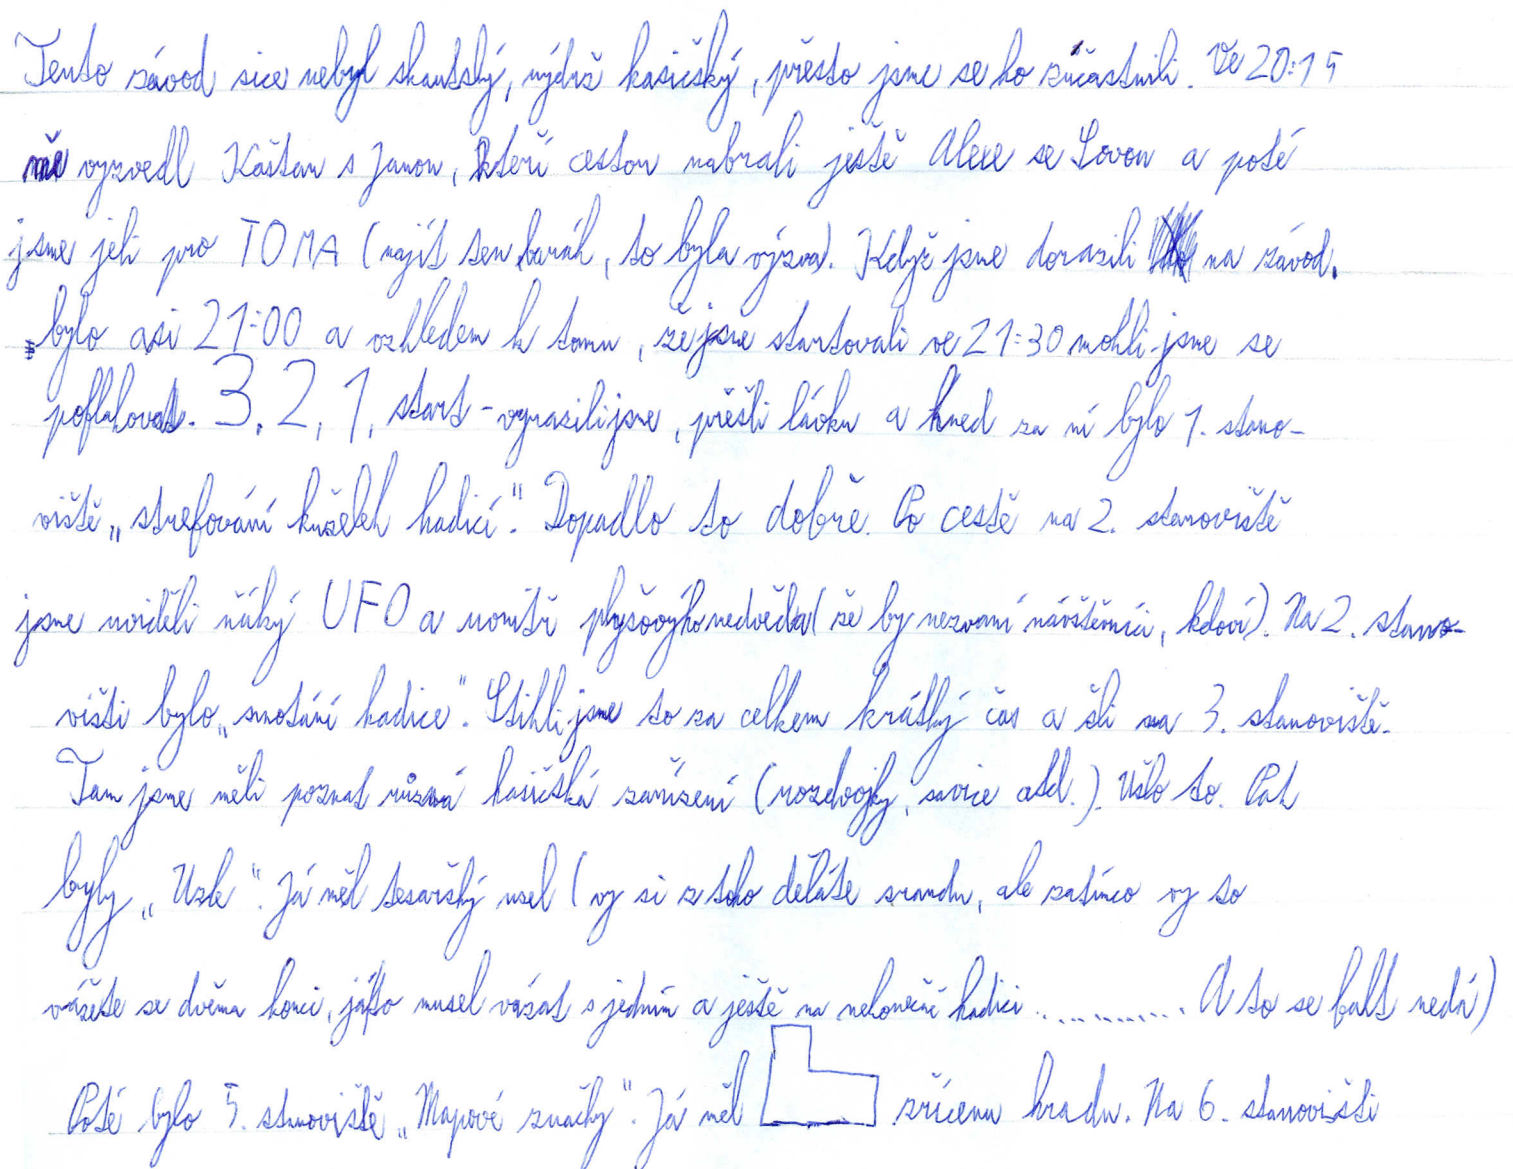 Tento závod sice nebyl skautský, nýbrž hasičský, přesto jsme se ho zúčastnili. Ve 20:15
mě vyzvedl Kaštan s Janou, kteří cestou nabrali ještě Alexe se Sovou a poté
jsme jeli pro TOMA (najít ten barák, to byla výzva). Když jsme dorazili na závod,
bylo asi 21:00 a vzhledem k tomu, že jsme startovali ve 21:30 mohli jsme se
poflakovat. 3, 2, 1, start - vyrazili jsme, přešli lávku a hned za ní bylo 1. stano-
viště „strefování kuželek hadicí". Dopadlo to dobře. Po cestě na 2. stanoviště
jsme viděli ňáký UFO a uvnitř plyšovýho medvěda (že by nezvaní návštěvníci, kdoví). Na 2. stano-
višti bylo „smotání hadice". Stihli jsme to za celkem krátký čas a šli na 3. stanoviště.
Tam jsme měli poznat různá hasičská zařízení (rozdvojky, savice atd.). Ušlo to. Pak
byly „Uzle". Já měl tesařský uzel (vy si z toho děláte srandu, ale zatímco vy to
vážete se dvěma konci, já to musel vázat s jedním a ještě na nekonečné hadici ............. A to se fakt nedá)
Poté bylo 5. stanoviště „Mapové značky". Já měl zříceninu hradu. Na 6. stanovišti